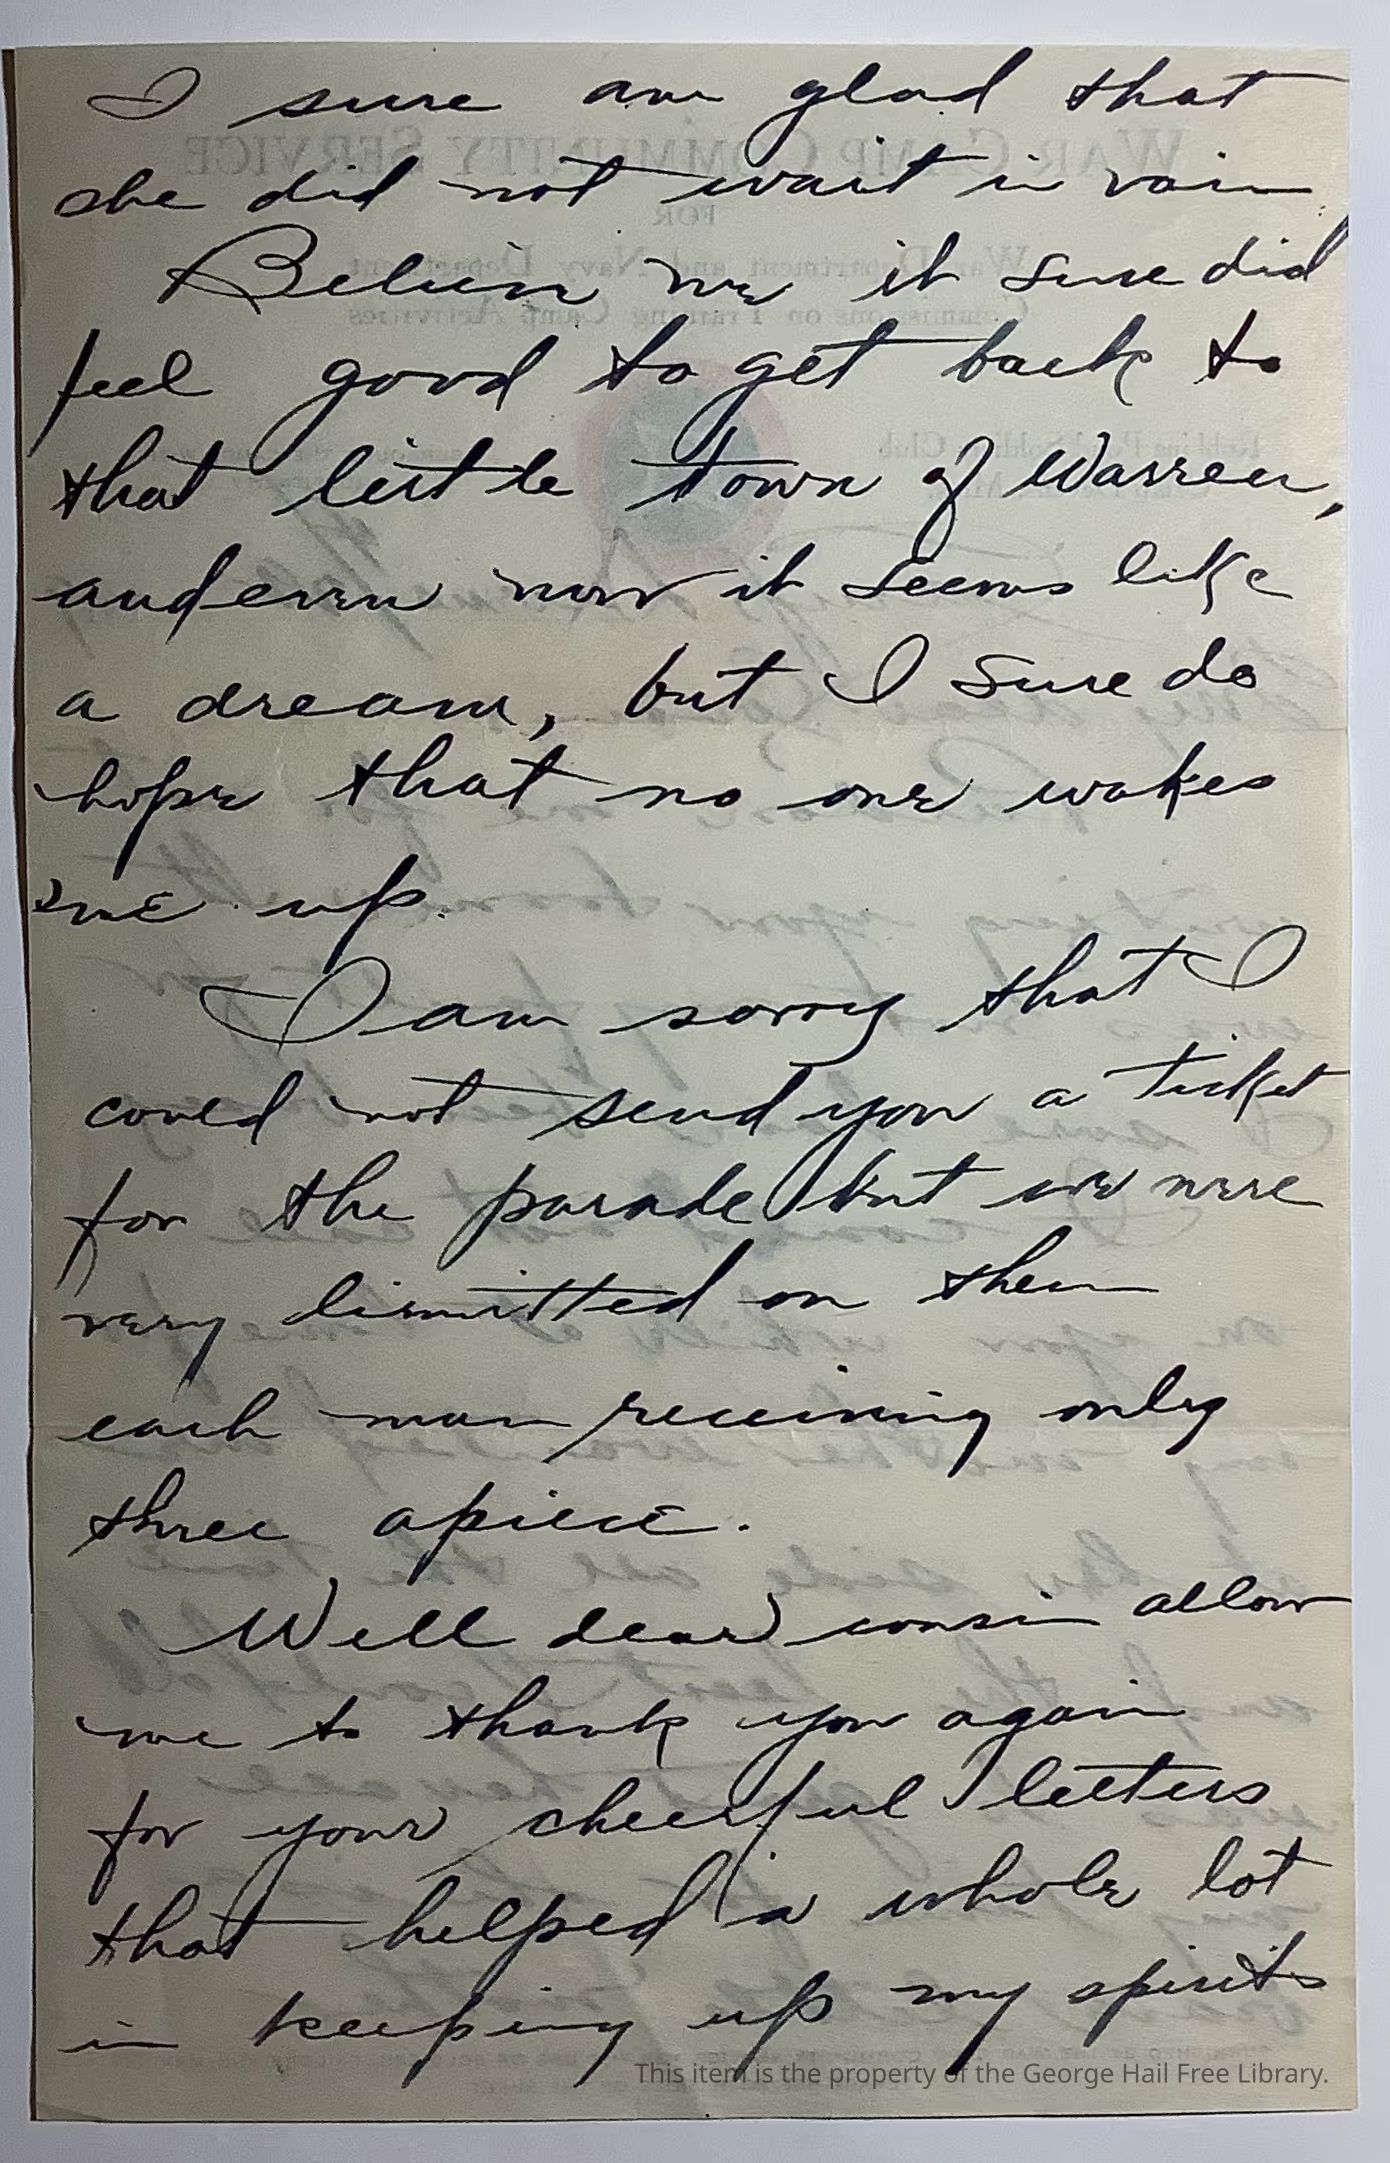 I sure am glad that
she did not wait in vain
Believe me it sure did
feel good to get back to
that little town of Warren,
and even now it seems like
a dream, but I sure do
hope that no one wakes
me up.
I am sorry that I
could not send you a ticket
for the parade but we were
very limitted on them
each man receiving only
three apiece.
Well dear cousin allow
me to thank you again
for your cheerful letters
that helped a whole lot
in keeping up my spirits
This item is the property of the George Hail Free Library.